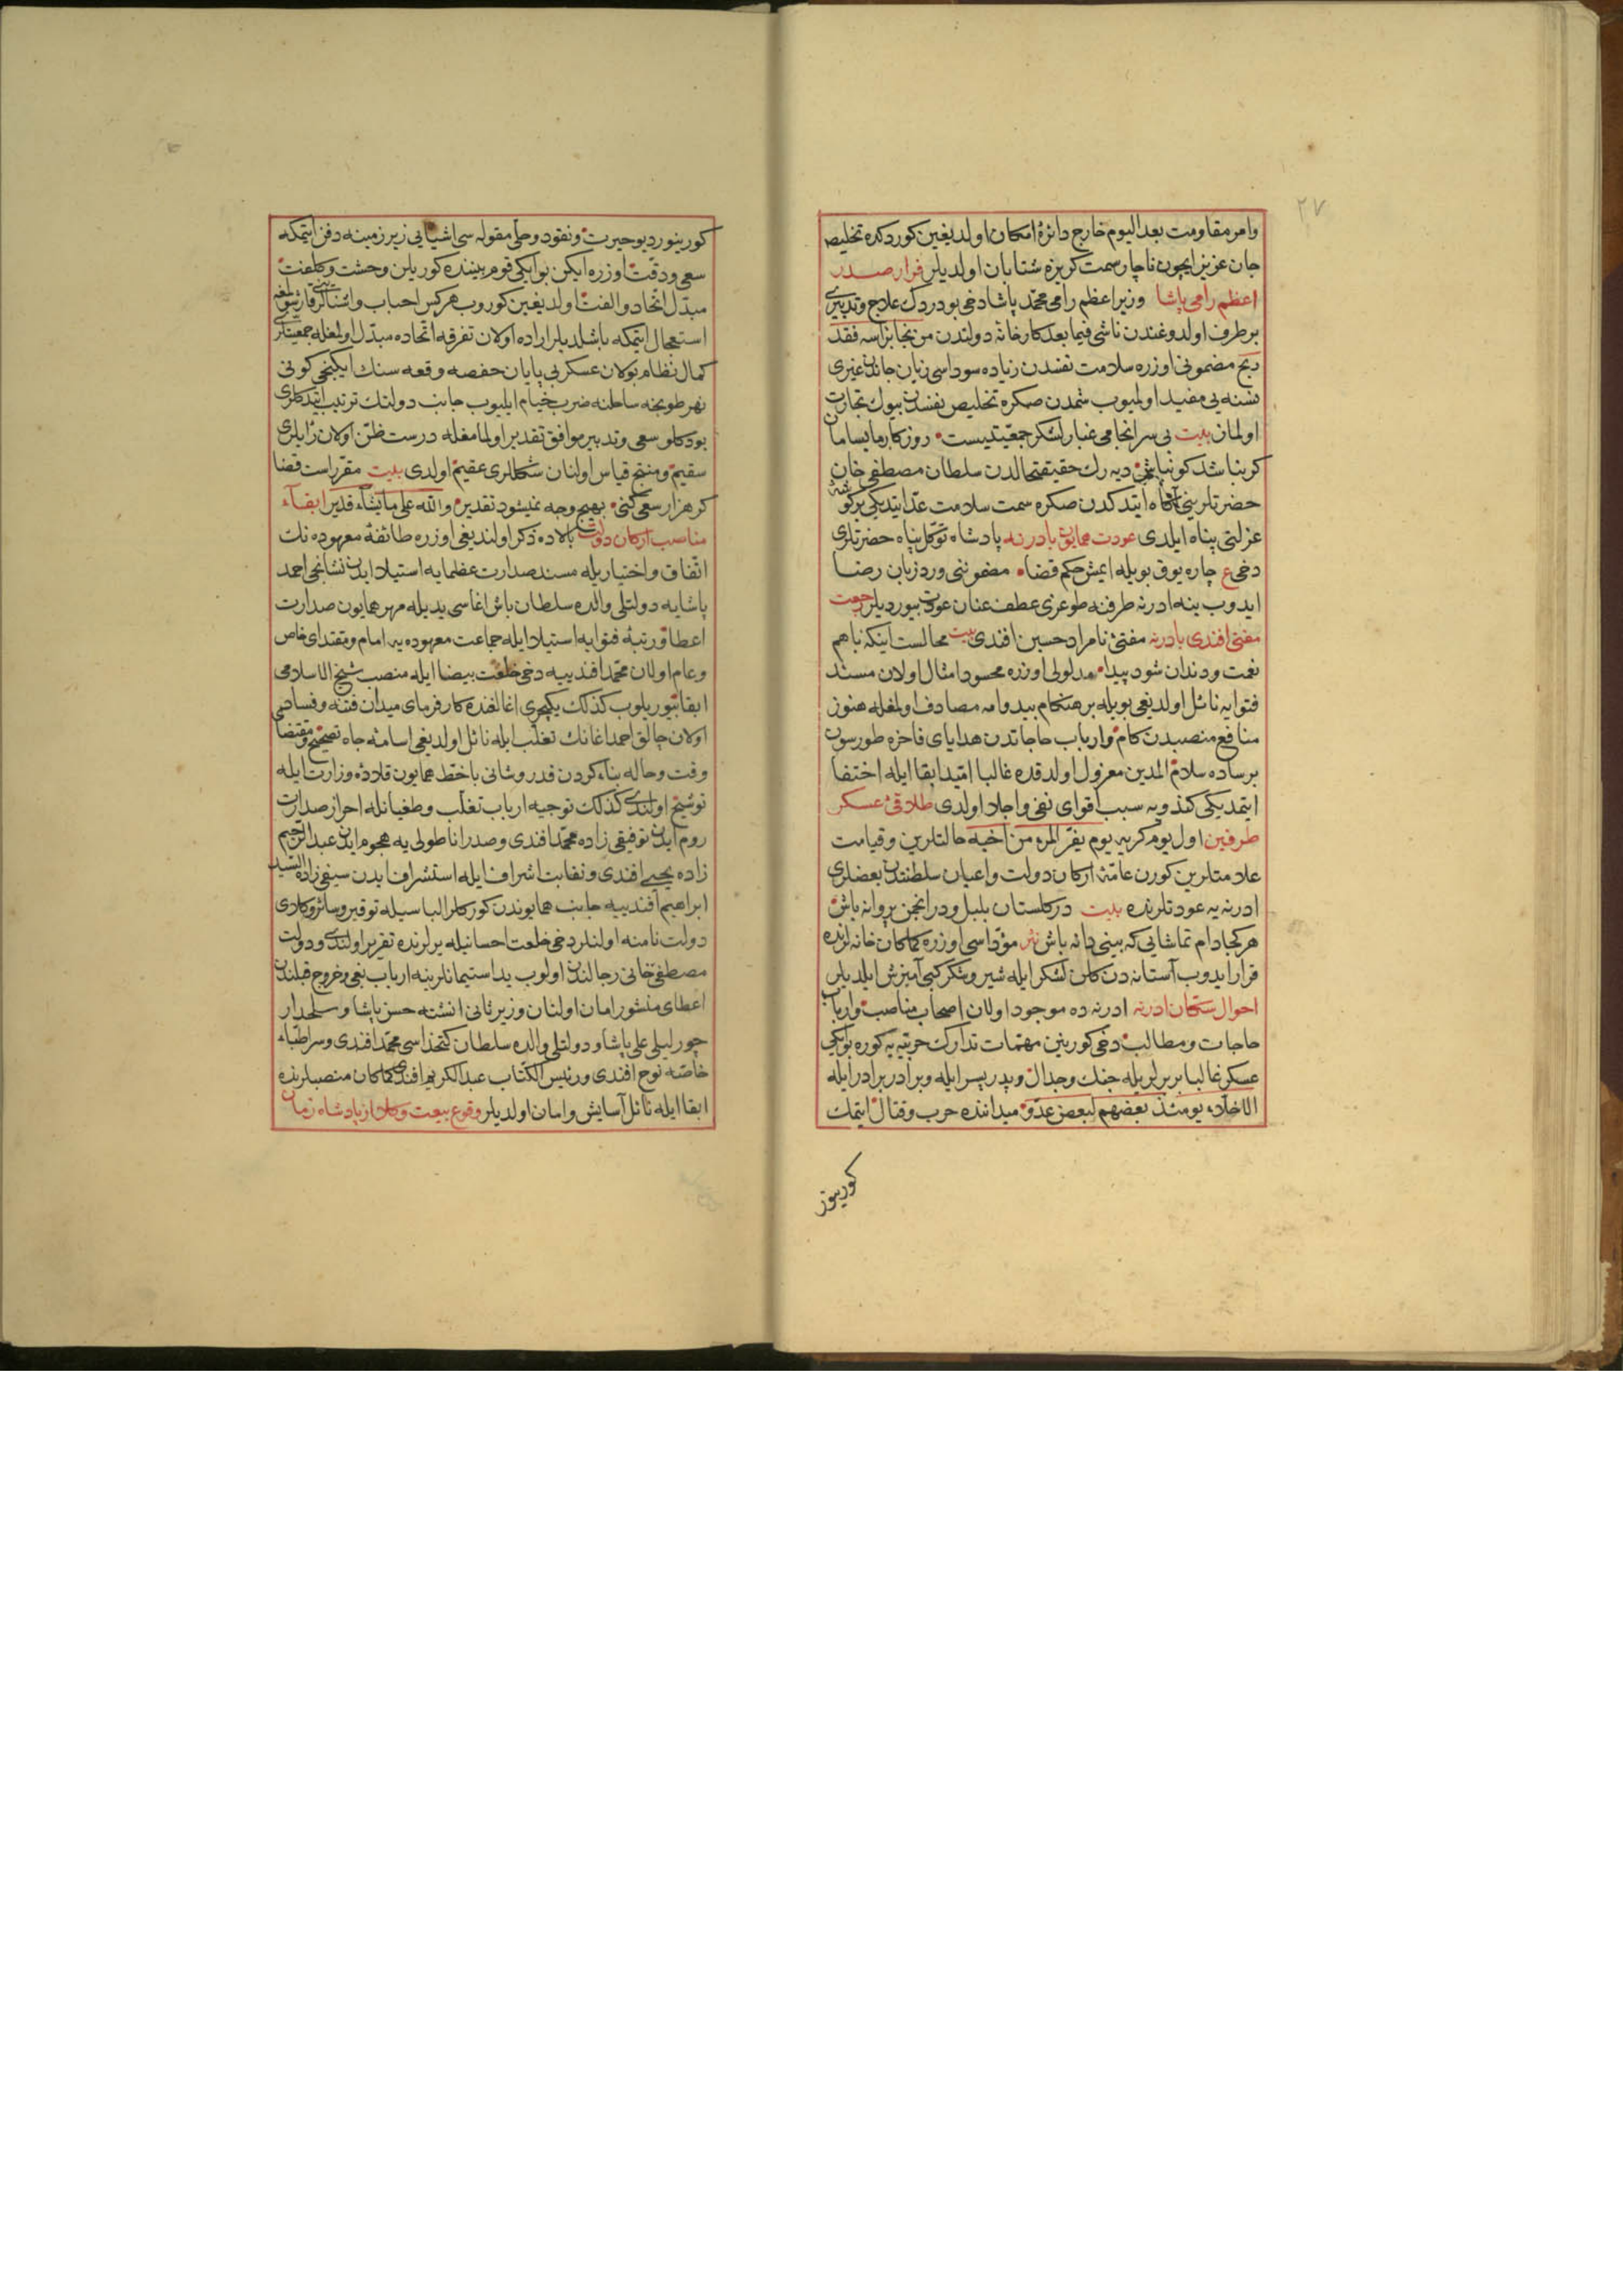 ٢٧
وامر مقاومت بعد اليوم خارج دائرۀ امكان اولديغين كوردكده تخليص
جان عزيز ايچون ناچار سمت كريزه شتابان اولديلر فرار صدر
اعظم رامى پاشا وزير اعظم رامى محمد پاشا دخى بو دردك علاج و تدبيرى
برطرف اولدوغندن ناشى فيما بعد كارخانۀ دولتدن من نجا برأسه فقد
ربح مضمونى اوزره سلامت نفسدن زياده سوداسى زيان جاندن غيرى
نسنه يى مفيد اولميوب شمدن صكره تخليص نفسدن بيوك تجارت
اولمان بيت بى سرانجامى غبار لشكر جمعيتيست روزكار ما بسامان
كر نباشد كو نباش ديه رك حقيقتحالدن سلطان مصطفى خان
حضرتلرينى آكاه ايتدكدن صكره سمت سلامت عد ايتديكى بر كوشۀ
عزلتى پناه ايلدى عودت همايون بادرنه پادشاه توكل پناه حضرتلرى
دخى ع چاره يوق بويله ايمش حكم قضا مضموننى ورد زبان رضا
ايدوب ينه ادرنه طرفنه طوغرى عطف عنان عودت بيورديلر رجعت
مفتى افندى بادرنه مفتئ نامراد حسين افندى بيت محالست اينكه با هم
نعمت و دندان شود پيدا مدلولى اوزره محسود امثال اولان مسند
فتوايه نائل اولديغى بويله بر هنكام بيدوامه مصادف اولمغله هنوز
منافع منصبدن كام و ارباب حاجاتدن هداياى فاخره طورسون
بر ساده سلام المدين معزول اولدقده غالبا اميد ابقا ايله اختفا
ايتمديكى كندويه سبب اقواى نفى و اجلا اولدى طلاقئ عسكر
طرفين اول يوم كريه يوم يفر المرء من اخيه حالتلرين و قيامت
علامتلرين كورن عامۀ اركان دولت و اعيان سلطنتدن بعضلرى
ادرنه يه عودتلرنده بيت در كلستان بلبل و در انجمن پروانه باش
هر كجا دام تماشايى كه بينى دانه باش نثر مؤداسى اوزره كماكان خانه لرنده
قرار ايدوب آستانه دن كلن لشكر ايله شير و شكر كبى آميزش ايلديلر
احوال سكان ادرنه ادرنه ده موجود اولان اصحاب مناصب و ارباب
حاجات و مطالب دخى كورينن مهمات تدارك حربيه يه كوره بو ايكى
عسكر غالبا بربرلريله جنك وجدال و پدر پسر ايله و برادر برادر ايله
الاخلاء يومئذ بعضهم لبعض عدو ميداننده حرب و قتال ايتمك
كورينور
كورينور ديو حيرت و نقود و حلى مقوله سى اشيايى زير زمينه دفن ايتمكه
سعى و دقت اوزره ايكن بو ايكى قوم بيننده كوريلن وحشت و كلفت
مبدل اتحاد و الفت اولديغين كوروب هركس احباب و اشنالرينى
استعجال ايتمكه باشلديلر اراده اولان تفرقه اتحاده مبدل اولمغله جمعيتلرى
كمال نظام بولان عسكر بى پايان حفصه وقعه سنك ايكنجى كونى
نهر طونجه ساحلنه ضرب خيام ايليوب جانب دولتك ترتيب ايتدكلرى
بودكلو سعى و تدبير موافق تقدير اولمامغله درست ظن اولان رايلرى
سقيم و منتج قياس اولنان شكللرى عقيم اولدى بيت مقرر است قضا
كر هزار سعى كنى بهيچ وجه نميشود تقدير والله على ما يشاء قدير ابقاء
مناصب اركان دولت بالاده ذكر اولنديغى اوزره طائفۀ معهوده نك
اتفاق و اختياريله مسند صدارت عظمايه استيلا ايدن نشانجى احمد
پاشايه دولتلى والده سلطان باش اغاسى يديله مهر همايون صدارت
اعطا و رتبۀ فتوايه استيلا ايله جماعت معهوده يه امام و مقتداى خاص
وعام اولان محمد افنديه دخى خلعت بيضا ايله منصب شيخ الاسلامى
ابقا بيوريلوب كذلك يكيچرى اغالغنده كارفرماى ميدان فتنه و فساد
اولان چالق احمد اغانك تغلب ايله نائل اولديغى اسامئ جاه تصحيح و مقتضا
وقت و حاله بناء كردن قدر و شانى با خط همايون قلادۀ وزارت ايله
توشيح اولندى كذلك توجيه ارباب تغلب و طغيانله احراز صدارت
روم ايدن توفيقى زاده محمد افندى و صدر اناطولى يه هجوم ايدن عبد الرحيم
زاده يحيى افندى و نقابت اشراف ايله استشراف ايدن سيفى زاده السيد
ابراهيم افنديه جانب همايوندن كوركلر الباسيله توقير و سائر وكلاى
دولت نامنه اولنلر دخى خلعت احسانيله يرلرنده تقرير اولندى و دولت
مصطفى خانى رجالندن اولوب يد استيمانلرينه ارباب بغى و خروج قبلندن
اعطاى منشور امان اولنان وزير ثانى انشته حسن پاشا و سلحدار
چورليلى على پاشا و دولتلى والده سلطان كتخداسى محمد افندى و سر اطباء
خاصه نوح افندى و رئيس الكتاب عبد الكريم افندى كماكان منصبلرنده
ابقا ايله نائل آسايش و امان اولديلر وقوع بيعت وكلا از پادشاه زمان